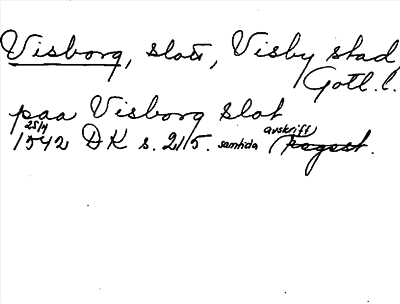 Visborg, slott, Visby stad,
Gotl. l.
paa Visborg slot
25/4 avskrift
1542 DK s. 215. samtida (Regest.